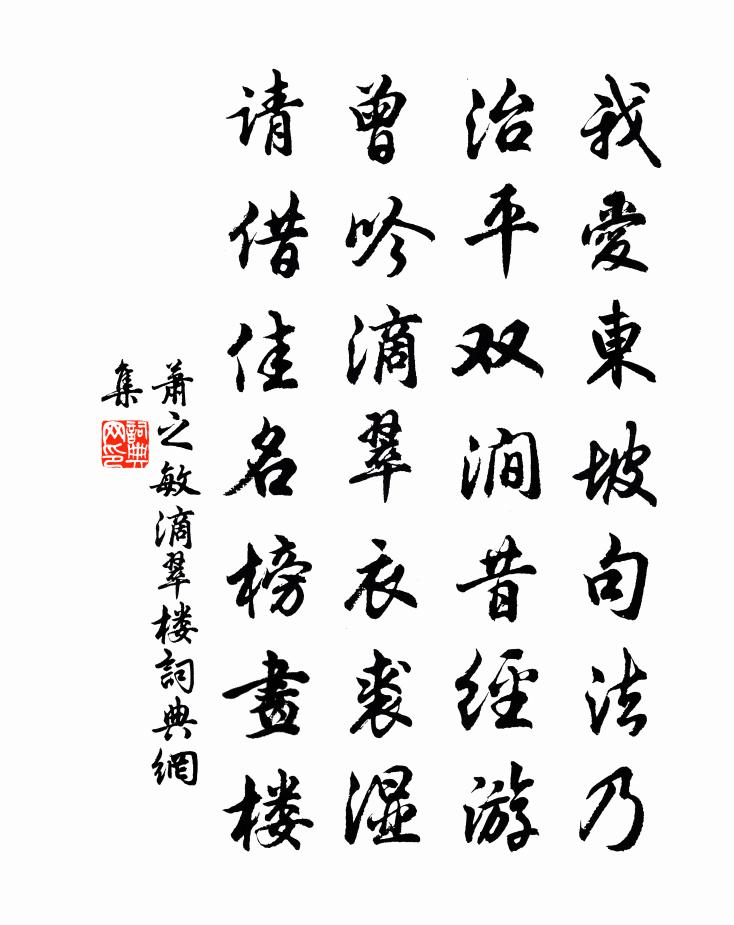 我愛東坡句法乃
治平双澗昔經游
曾吟滴翠衣裘湿
请借佳名榜畫楼
蕭之敏滴翠楼詞典網
集
詞典网印